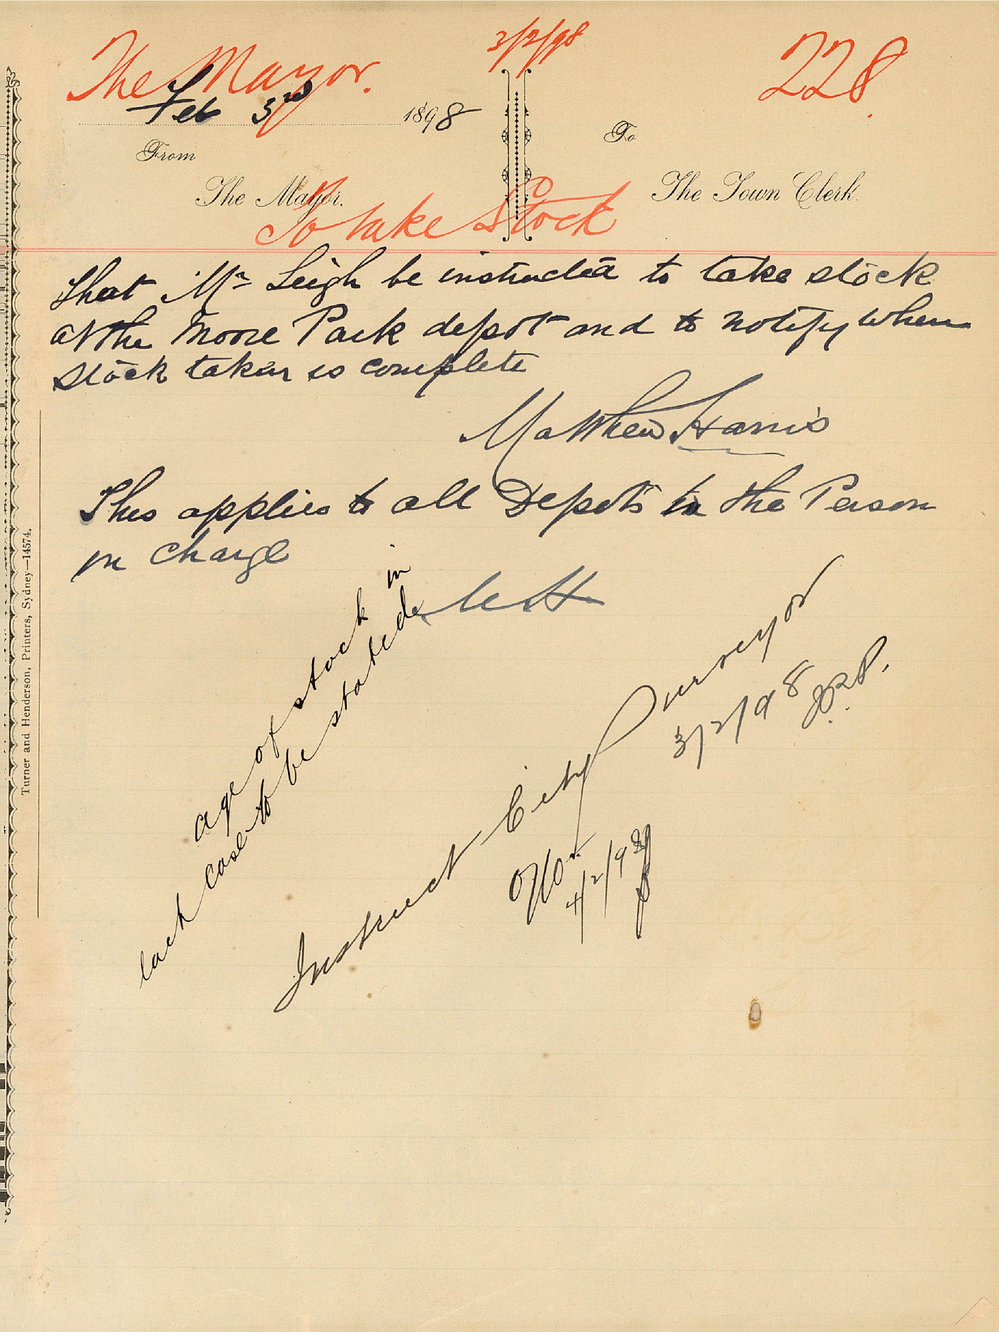 The Mayor.
3/2/98
228
Feb 3rd 1898
From
To
The Mayor.
The Town Clerk.
To take Stock
That Mr Leigh be instructed to take stock
at the Moore Park depot and to notify when
stock taken is complete
Matthew Harris
This applies to all Depots to the Person
in charge
MH
age of stock in
each case to be stated
Instruct City Surveyor
3/2/98
4/2/98
Turner and Henderson, Printers, Sydney—14574.